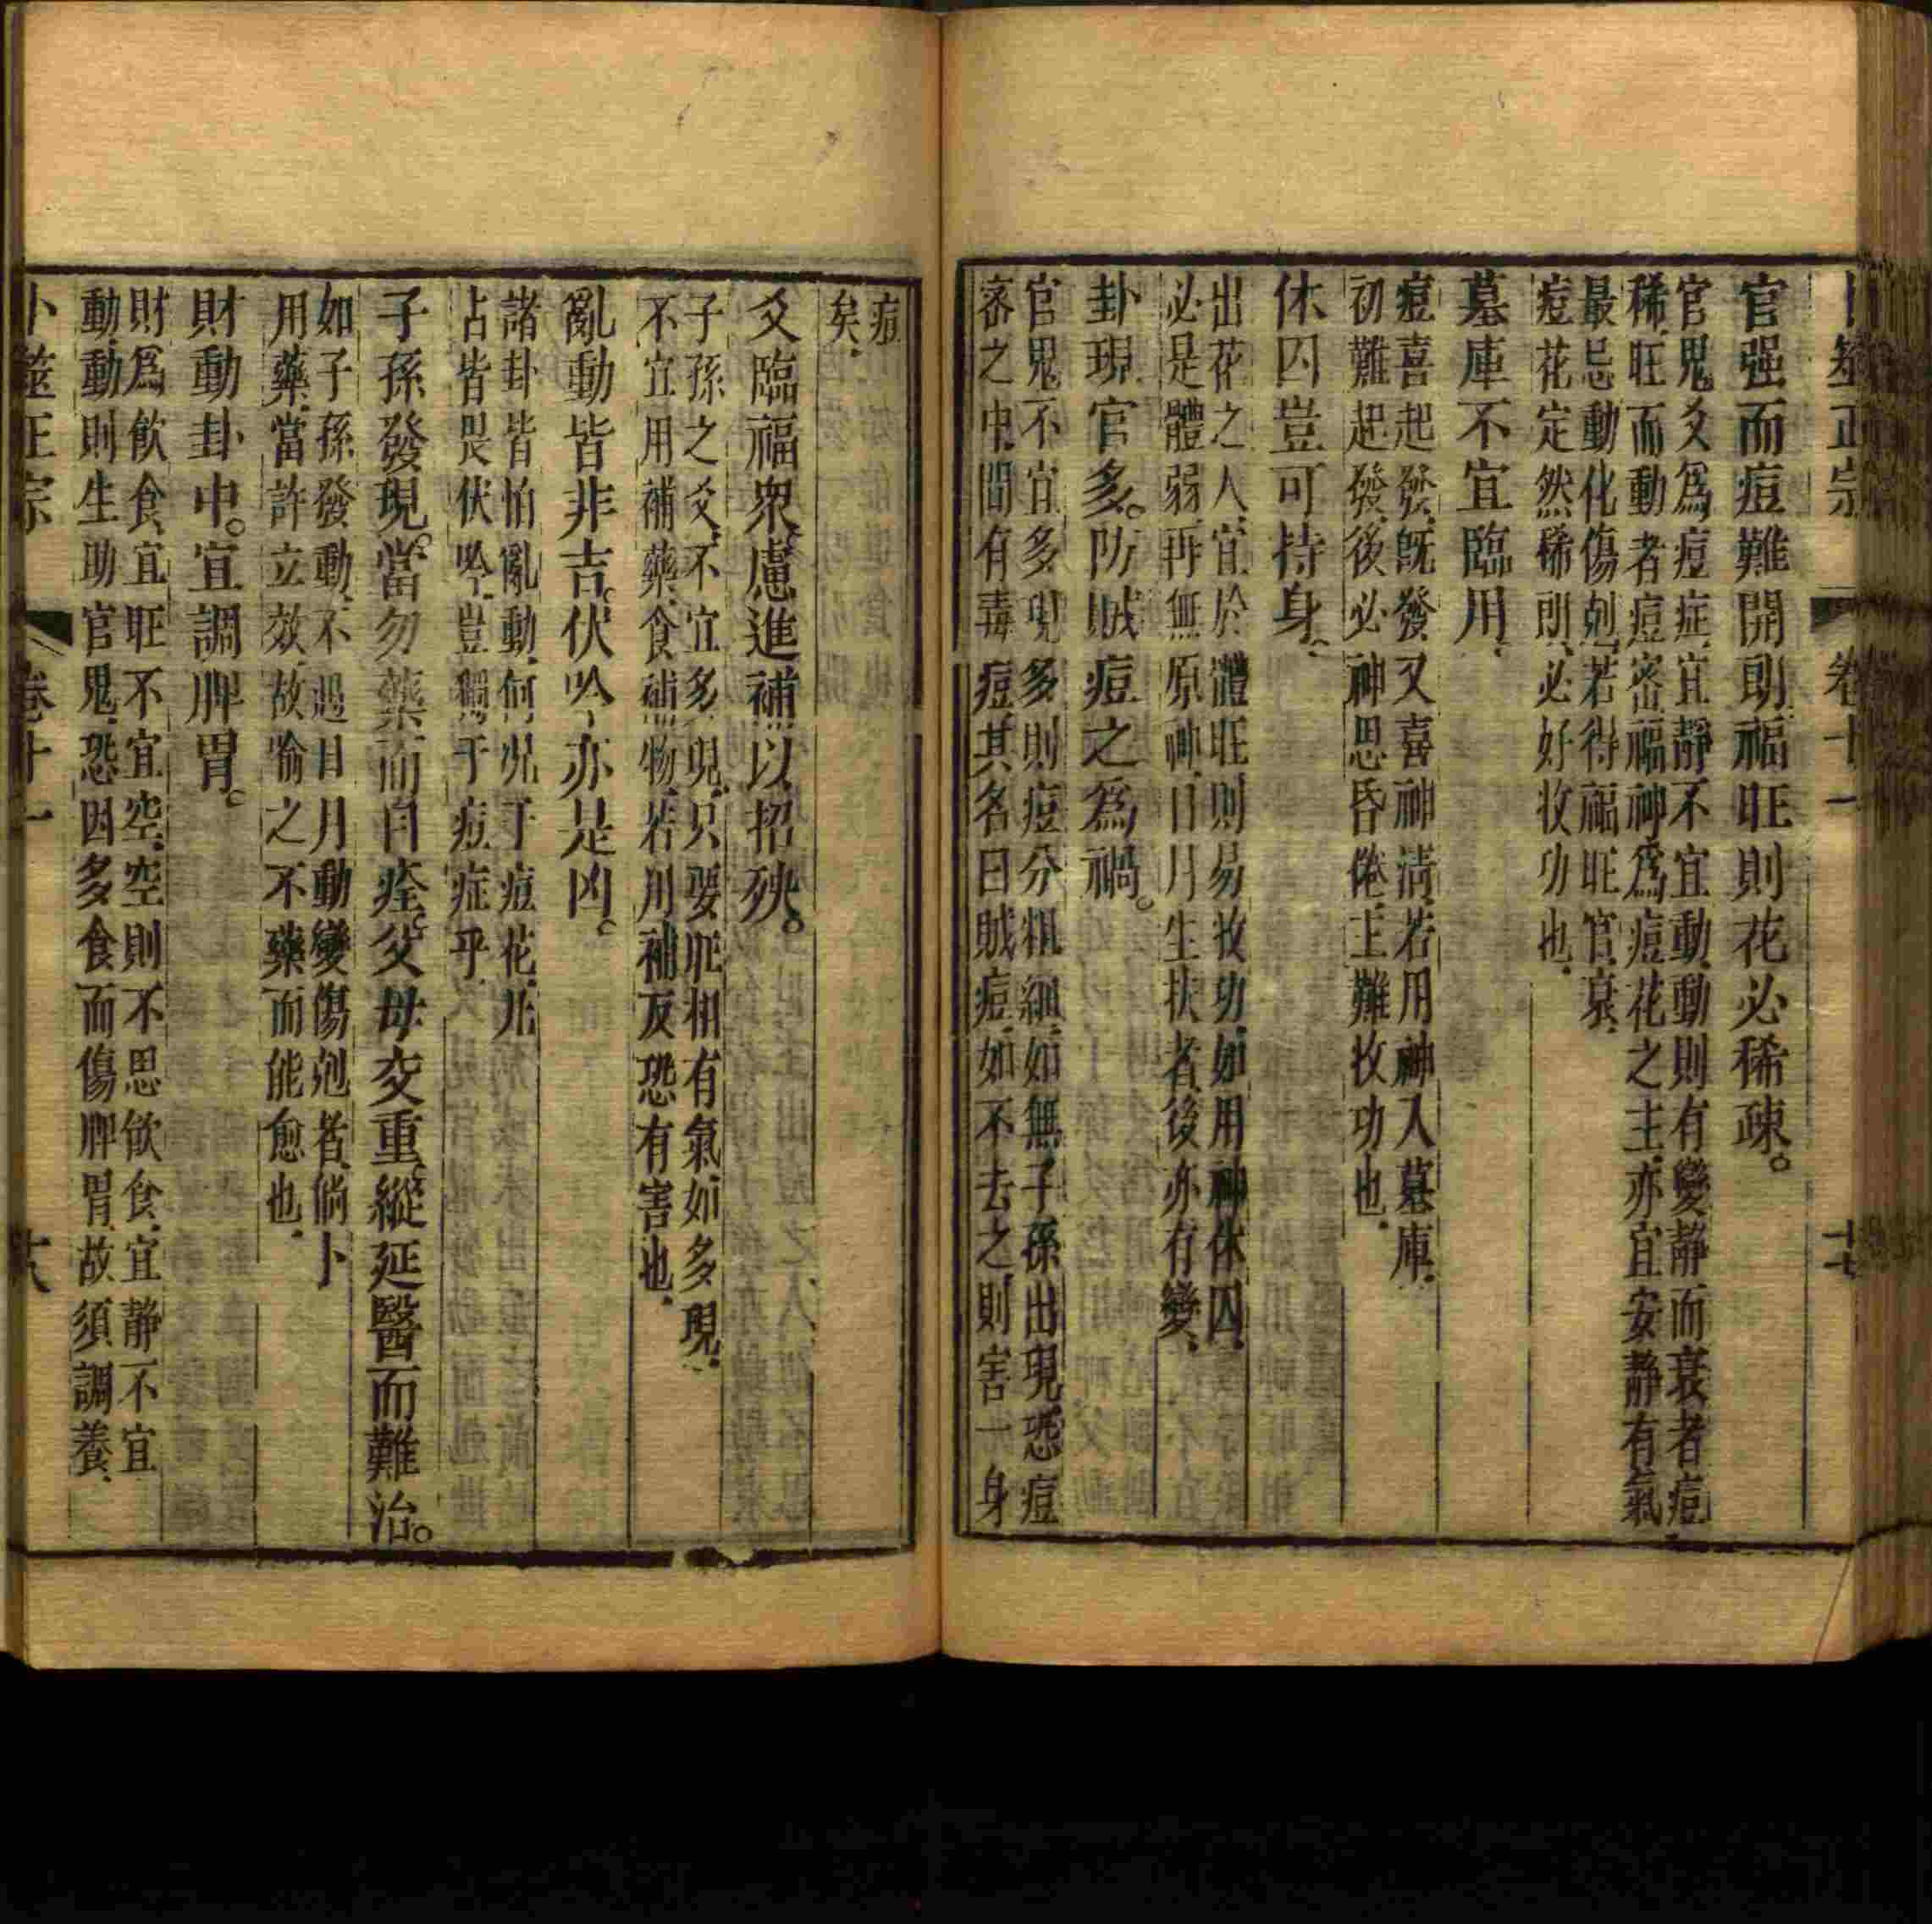 卜筮正宗 卷十一 十七
官强而痘難開朗福旺則花必稀疎。
官鬼爻爲痘症、宜靜不宜動、動則有變靜而衰者痘
稀、旺而動者痘密、福神爲痘花之主、亦宜安靜有氣
最忌動化傷剋、若得福旺官衰、
痘花定然稀朗、必好收功也、
墓庫不宜臨用、
痘喜起發、旣發又喜神清、若用神入墓庫、
初難起發、後必神思昏倦、主難收功也、
休囚豈可持身。
出花之人、宜於體旺、則易收功、如用神休囚、
必是體弱、再無原神、日月生扶者、後亦有變、
卦現官多。防賊痘之爲禍。
官鬼不宜多現多則痘分粗細、如無子孫出現恐痘
密之中、間有毒痘、其名曰賊痘、如不去之則害一身
痘
矣、
爻臨福衆、慮進補以招殃。
子孫之爻、不宜多現、只要旺相有氣如多現、
不宜用補藥、食補物、若用補反恐有害也、
亂動皆非吉。伏吟亦是凶。
諸卦皆怕亂動、何况于痘花、凡
占皆畏伏吟、豈獨于痘症乎、
子孫發現。當勿藥而自痊。父母交重、縱延醫而難治。
如子孫發動、不遇日月動變傷剋者、倘卜
用藥、當許立效、故喻之不藥而能愈也、
財動卦中。宜調脾胃。
財爲飮食、宜旺不宜空、空則不思飮食、宜靜不宜
動、動則生助官鬼、恐因多食而傷脾胃、故須調養、
卜筮正宗 卷十一 十八